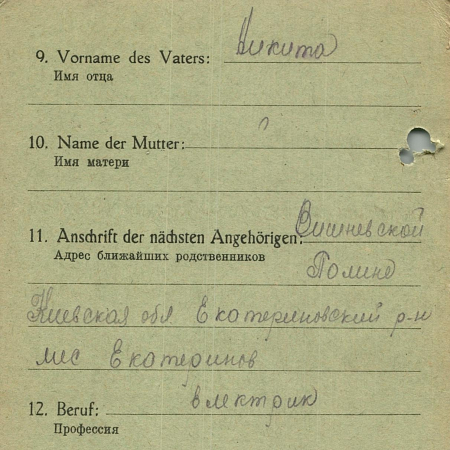 9. Vorname des Vaters: Никита
Имя отца
10. Name der Mutter:
Имя матери
11. Anschrift der nächsten Angehörigen: Вишневской
Адрес ближайших родственников
Полине
Киевская обл Екатериновский р-н
мес Екатеринов
12. Beruf: електрик
Профессия